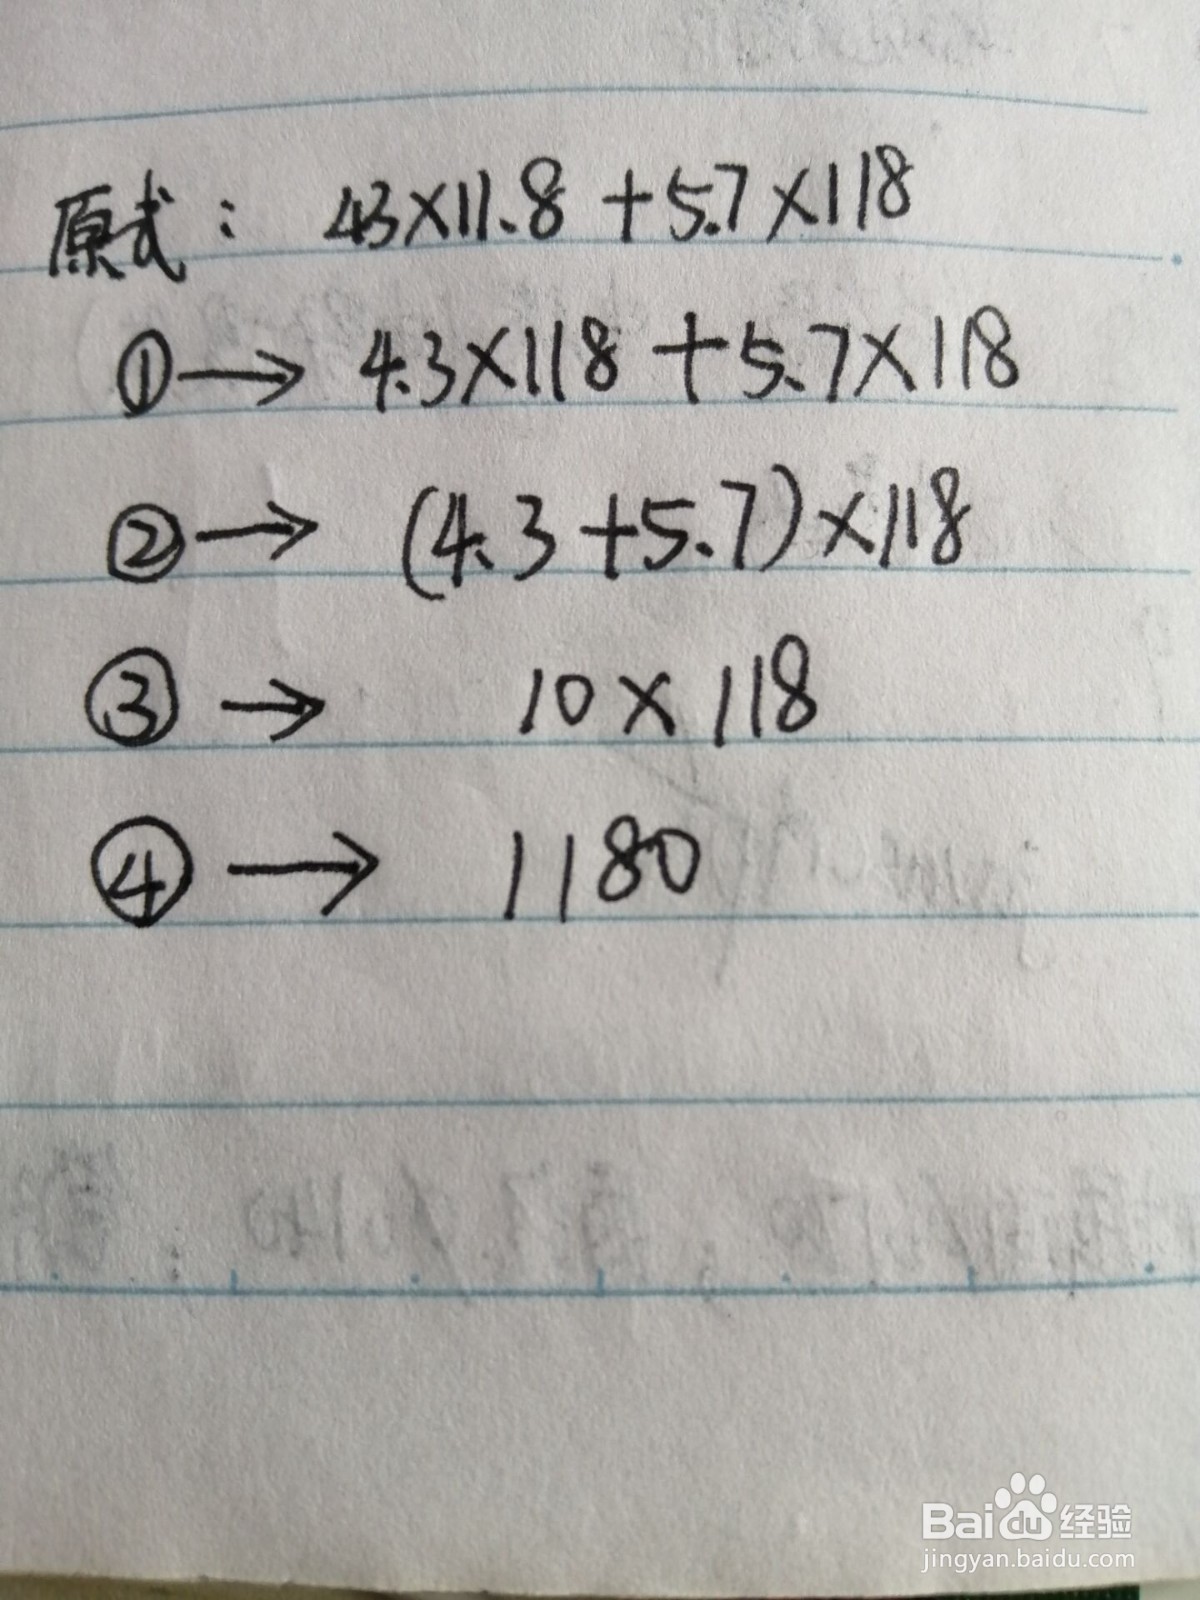 原式： 43×11.8+5.7×118
①→ 4.3×118+5.7×118
②→ (4.3+5.7)×118
③→ 10×118
④→ 1180
Baidu经验
jingyan.baidu.com